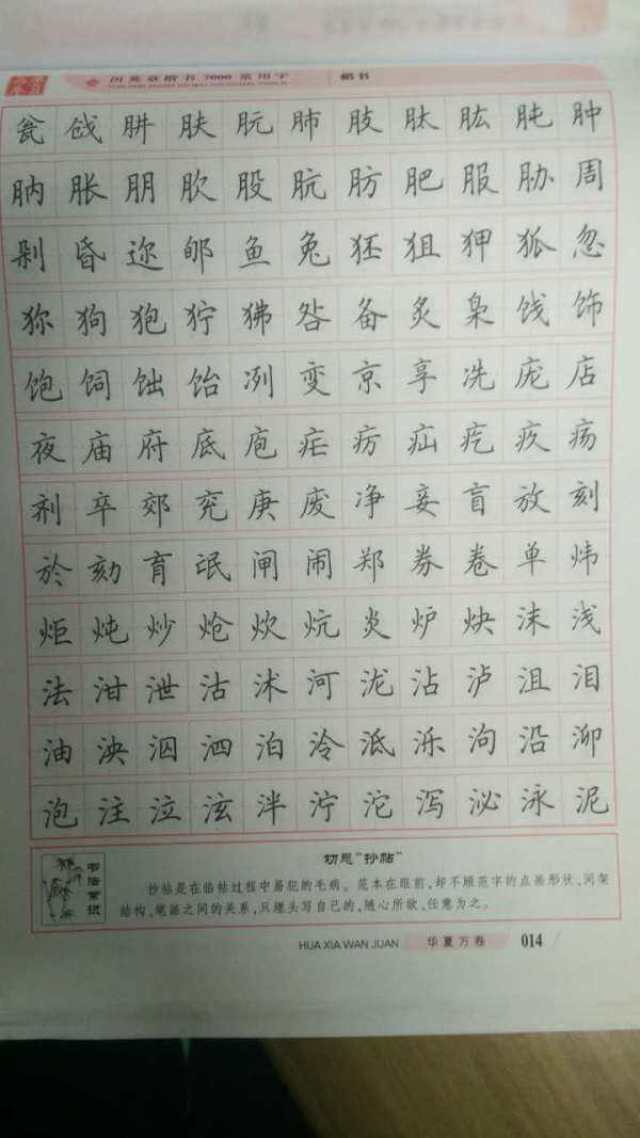 田英章楷书 7000 常用字 楷书
瓮 戗 肼 肤 朊 肺 肢 肽 肱 肫 肿
肭 胀 朋 肷 股 肮 肪 肥 服 胁 周
剁 昏 迩 郇 鱼 兔 狉 狙 狎 狐 忽
狝 狗 狍 狞 狒 咎 备 炙 枭 饯 饰
饱 饲 饳 饴 冽 变 京 享 冼 庞 店
夜 庙 府 底 庖 疟 疠 疝 疙 疚 疡
剂 卒 郊 兖 庚 废 净 妾 盲 放 刻
於 劾 育 氓 闸 闹 郑 券 卷 单 炜
炬 炖 炒 炝 炊 炕 炎 炉 炔 沫 浅
法 泔 泄 沽 沭 河 泷 沾 泸 沮 泪
油 泱 泅 泗 泊 泠 泜 泺 泃 沿 泖
泡 注 泣 泫 泮 泞 沱 泻 泌 泳 泥
切忌“抄帖”
书法常识
抄帖是在临帖过程中易犯的毛病。范本在眼前,却不顾范字的点画形状、间架
结构、笔画之间的关系,只埋头写自己的,随心所欲、任意为之。
HUA XIA WAN JUAN 华夏万卷 014